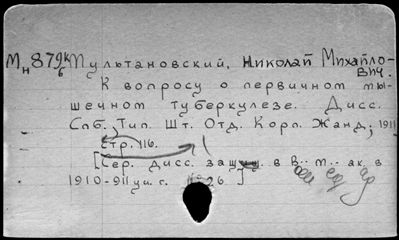 Мн 879к/6 Мультановский, Николай Михайло-
вич.
К вопросу о первичном мы-
шечном туберкулезе. Дисс.
Спб., Тип. Шт. Отд. Корп. Жанд., 1911
стр. 116.
[Сер. дисс. защищ. в В.-м. ак. в
1910-911 уч. г. №26]